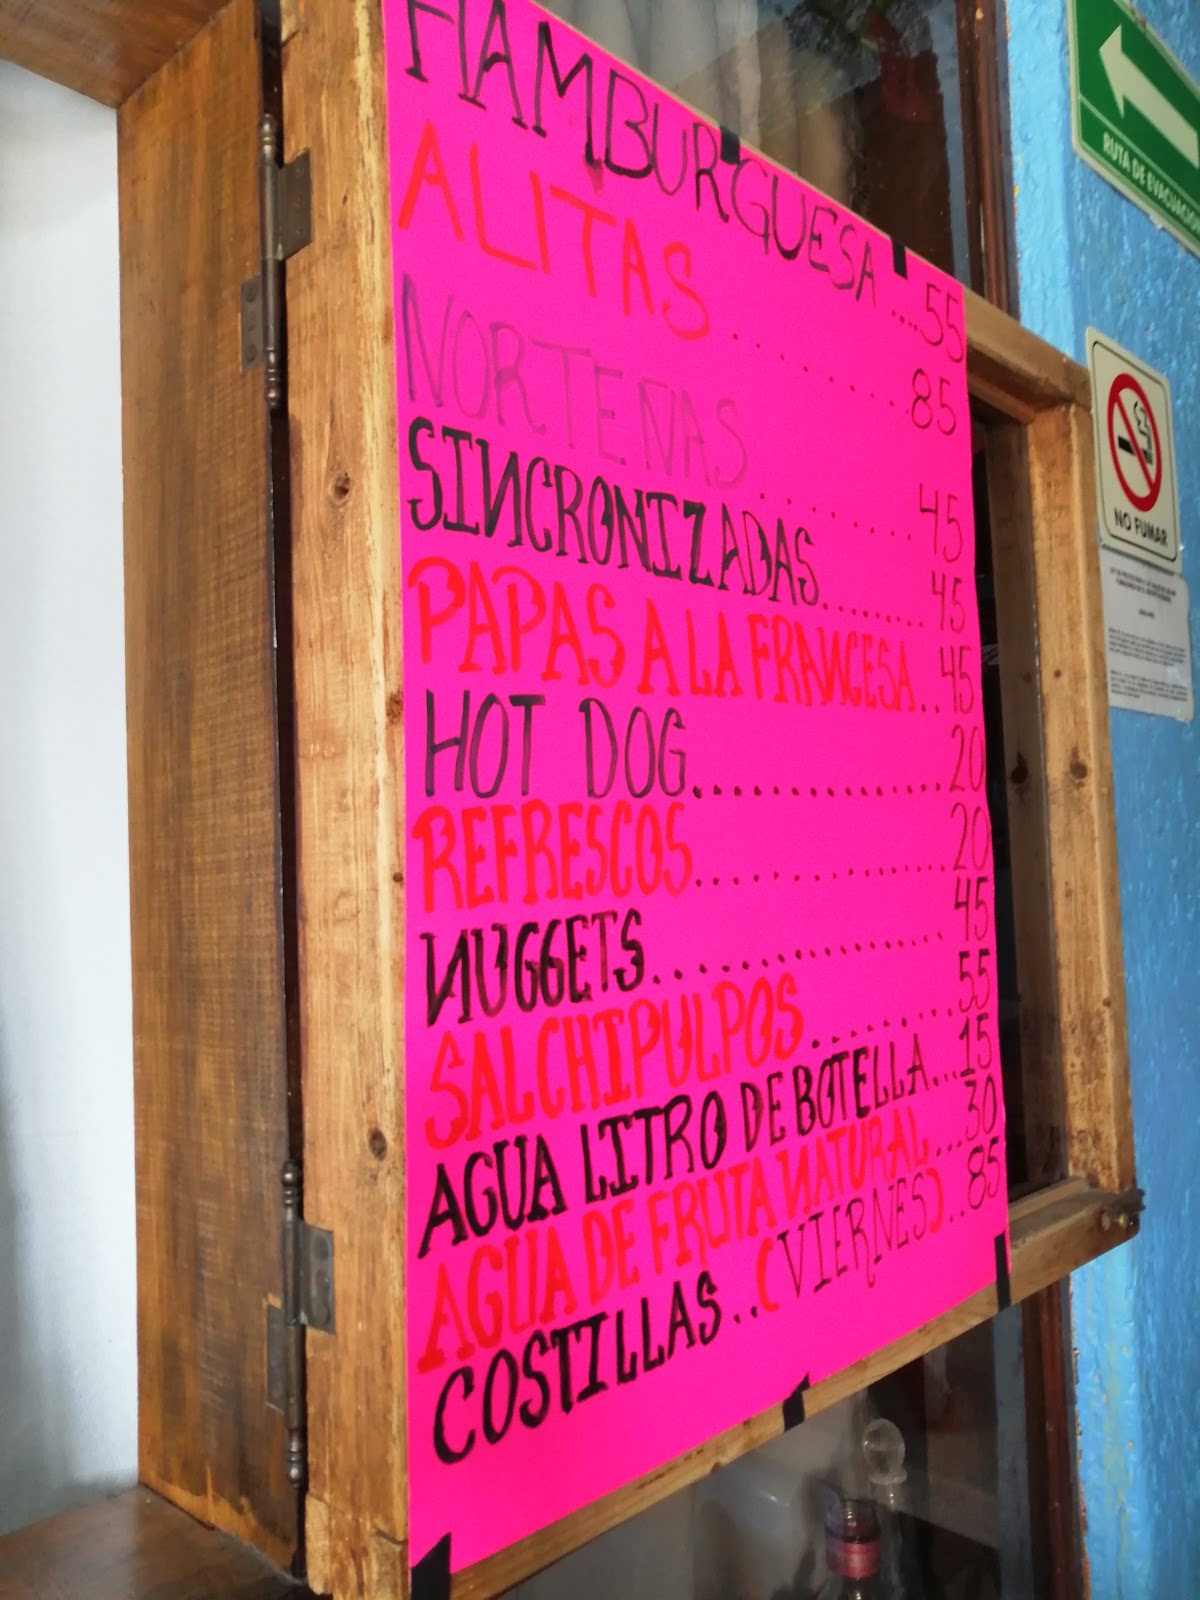 HAMBURGUESA....55
ALITAS..........85
NORTEÑAS.........45
SINCRONIZADAS........45
PAPAS A LA FRANCESA..45
HOT DOG...............20
REFRESCOS..............20
NUGGETS.................45
SALCHIPULPOS.........55
AGUA LITRO DE BOTELLA...15
AGUA DE FRUTA NATURAL...30
COSTILLAS..(VIERNES)..85
RUTA DE EVACUACI
NO FUMAR